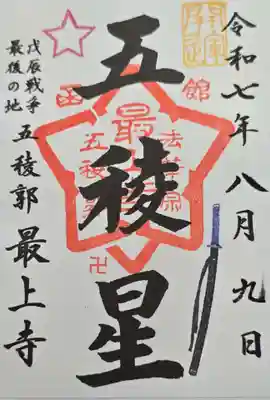 令和七年八月九日
五稜星
戊辰戦争
最後の地
五稜郭 最上寺
函館
卍